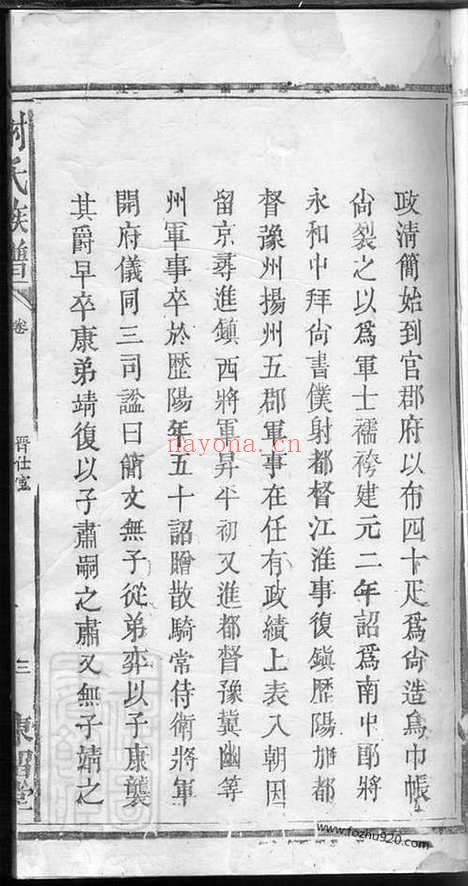 政淸簡始到官郡府以布四十疋爲尙造烏巾帳
尙裂之以爲軍士襦袴建元二年詔爲南中郎將
永和中拜尙書僕射都督江淮事復鎭歷陽加都
督豫州揚州五郡軍事在任有政績上表入朝因
留京尋進鎭西將軍昇平初又進都督豫冀幽等
州軍事卒於歷陽年五十詔贈散騎常侍衛將軍
開府儀同三司諡曰簡文無子從弟奕以子康襲
其爵早卒康弟靖復以子肅嗣之肅又無子靖之
氏族譜
卷
三
nayona.cn
www.fozhu920.com